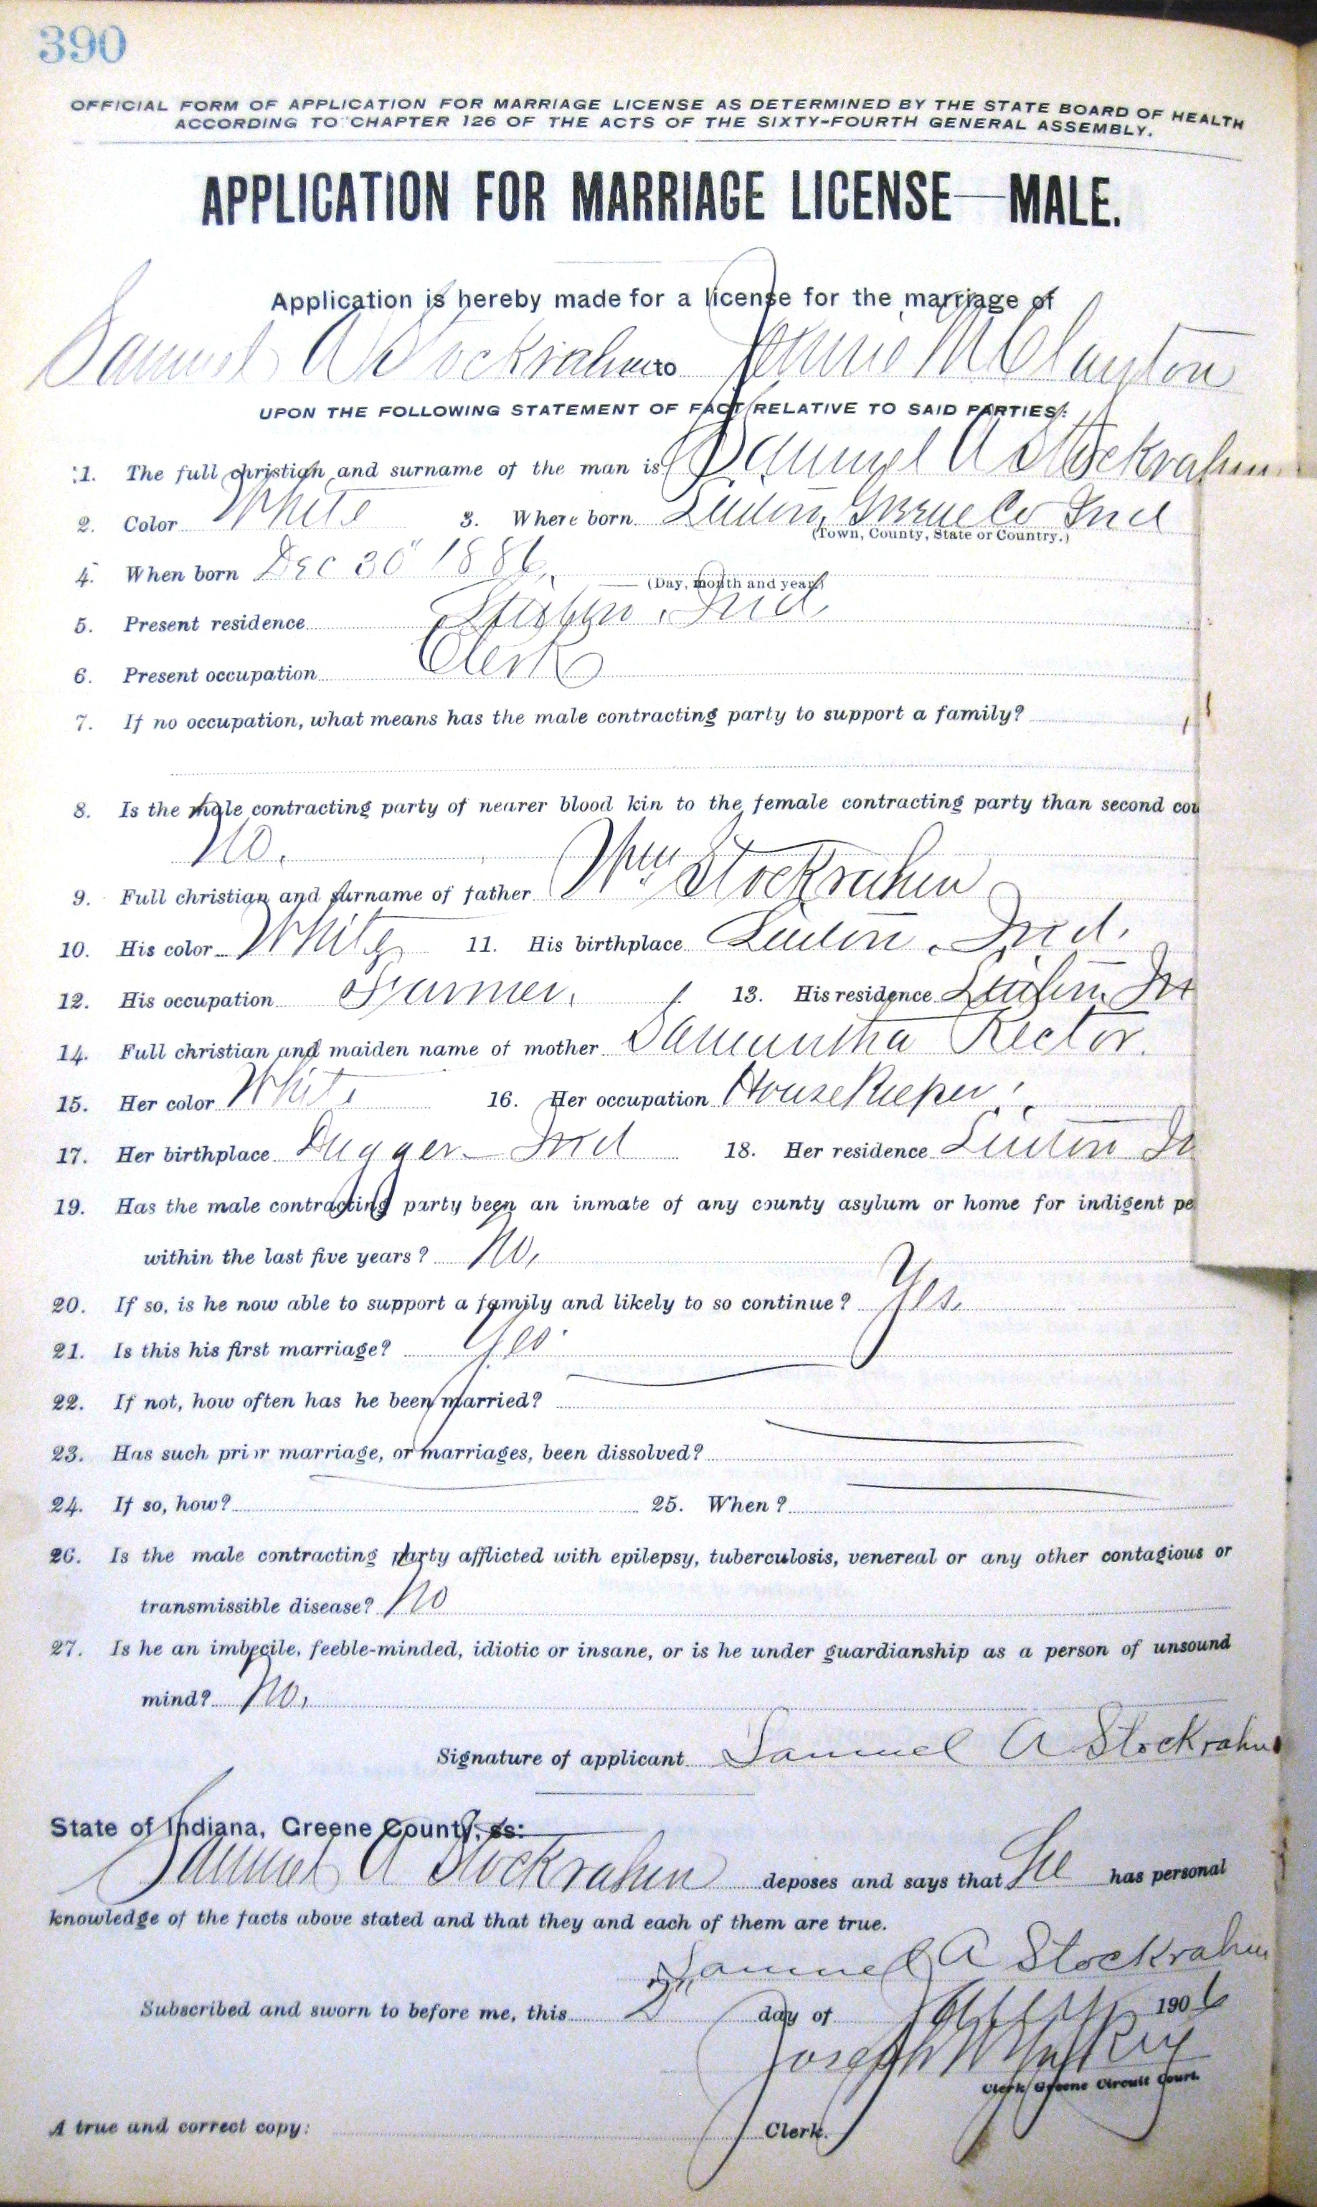 390
OFFICIAL FORM OF APPLICATION FOR MARRIAGE LICENSE AS DETERMINED BY THE STATE BOARD OF HEALTH
ACCORDING TO CHAPTER 126 OF THE ACTS OF THE SIXTY-FOURTH GENERAL ASSEMBLY.
APPLICATION FOR MARRIAGE LICENSE—MALE.
Application is hereby made for a license for the marriage of
Samuel A Stockrahm to Jennie M Clayton
UPON THE FOLLOWING STATEMENT OF FACT RELATIVE TO SAID PARTIES:
1. The full christian and surname of the man is Samuel A Stockrahm
2. Color White 3. Where born Linton, Greene Co Ind
(Town, County, State or Country.)
4. When born Dec 30" 1886.
(Day, month and year.)
5. Present residence Linton, Ind.
6. Present occupation Clerk
7. If no occupation, what means has the male contracting party to support a family?
8. Is the male contracting party of nearer blood kin to the female contracting party than second cou
No.
9. Full christian and surname of father Wm Stockrahm
10. His color White 11. His birthplace Linton, Ind.
12. His occupation Farmer. 13. His residence Linton, In
14. Full christian and maiden name of mother Samantha Rector.
15. Her color White 16. Her occupation HouseKeeper.
17. Her birthplace Dugger Ind 18. Her residence Linton In
19. Has the male contracting party been an inmate of any county asylum or home for indigent pe
within the last five years? No,
20. If so, is he now able to support a family and likely to so continue? Yes.
21. Is this his first marriage? Yes
22. If not, how often has he been married?
23. Has such prior marriage, or marriages, been dissolved?
24. If so, how? 25. When?
26. Is the male contracting party afflicted with epilepsy, tuberculosis, venereal or any other contagious or
transmissible disease? No
27. Is he an imbecile, feeble-minded, idiotic or insane, or is he under guardianship as a person of unsound
mind? No,
Signature of applicant Samuel A Stockrahm
State of Indiana, Greene County, ss:
Samuel A Stockrahm deposes and says that he has personal
knowledge of the facts above stated and that they and each of them are true.
Samuel A Stockrahm
Subscribed and sworn to before me, this 2" day of 1906
Joseph W
Clerk Greene Circuit Court.
A true and correct copy: Clerk.